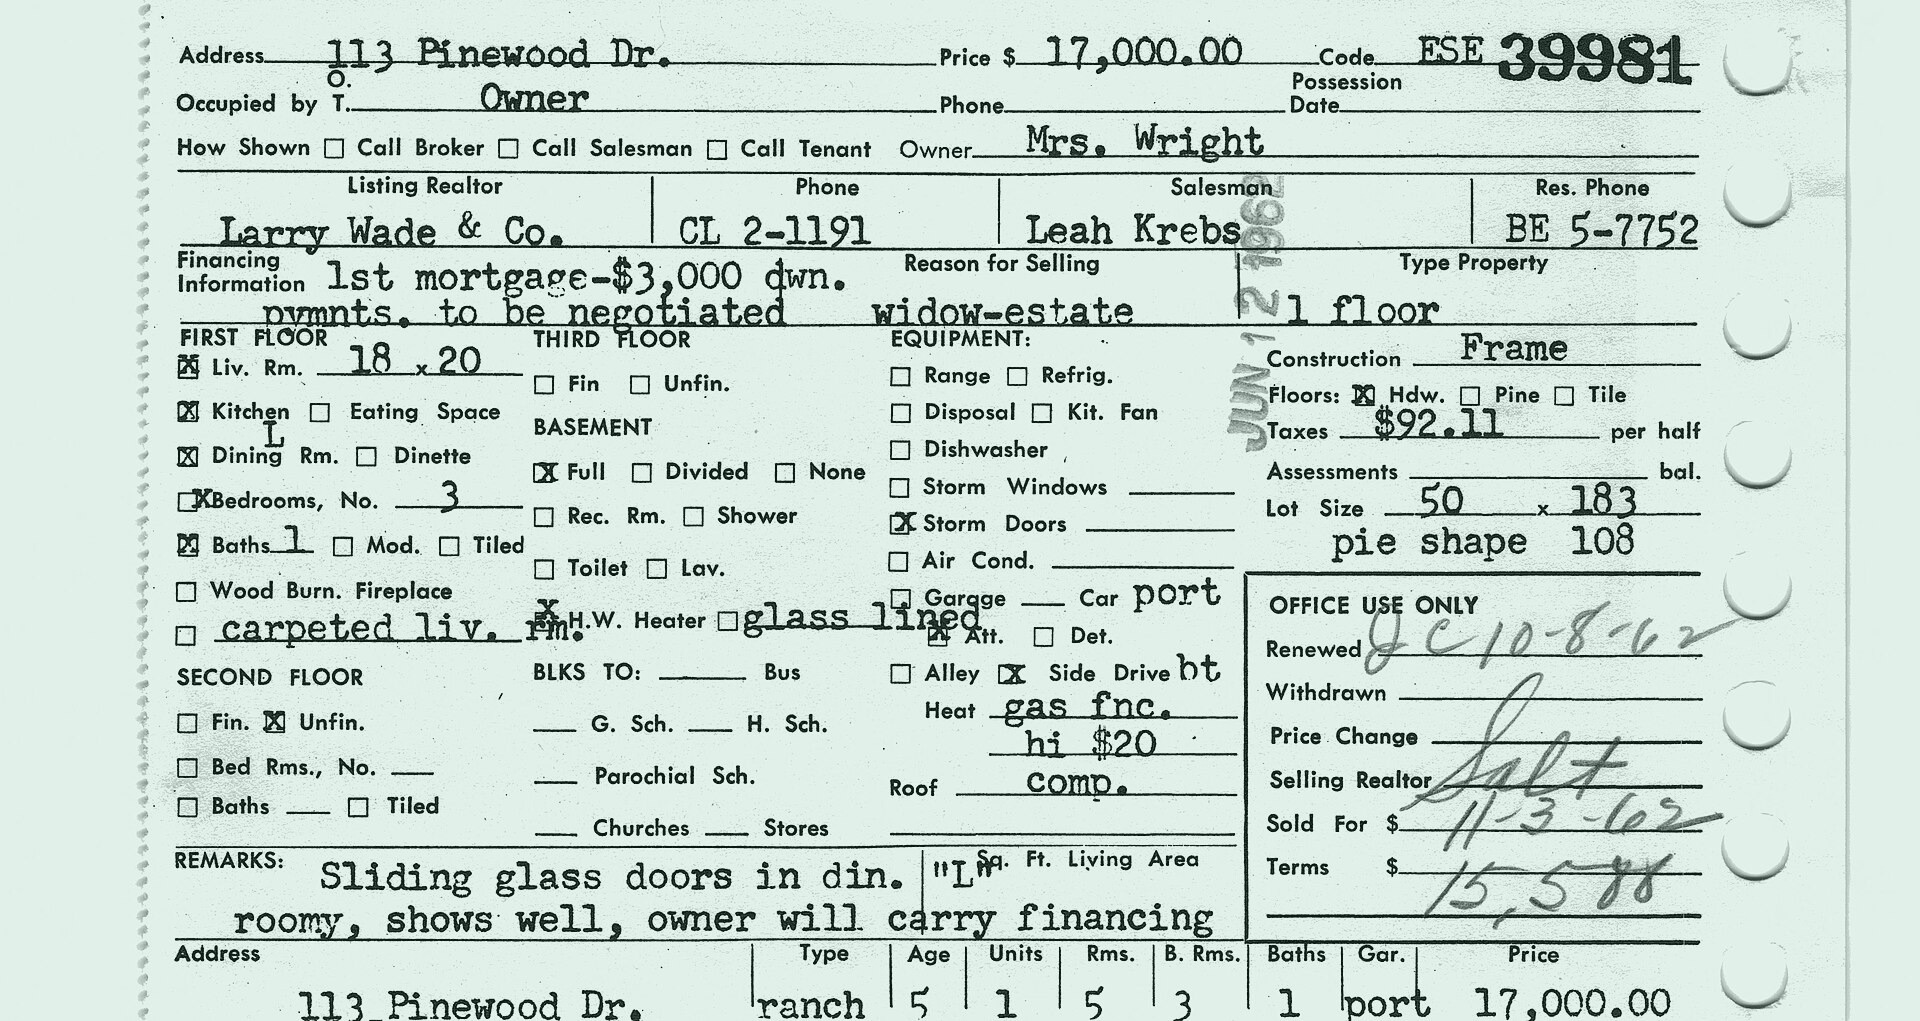 Address 113 Pinewood Dr. Price $ 17,000.00 Code ESE 39981
Occupied by O. T. Owner Phone Possession Date
How Shown ☐ Call Broker ☐ Call Salesman ☐ Call Tenant Owner Mrs. Wright
Listing Realtor Phone Salesman Res. Phone
Larry Wade & Co. CL 2-1191 Leah Krebs BE 5-7752
JUN 12 1962
Financing Information 1st mortgage-$3,000 dwn. Reason for Selling Type Property
pymnts. to be negotiated widow-estate 1 floor
FIRST FLOOR
☒ Liv. Rm. 18 x 20
☒ Kitchen ☐ Eating Space
L
☒ Dining Rm. ☐ Dinette
☒ Bedrooms, No. 3
☒ Baths 1 ☐ Mod. ☐ Tiled
☐ Wood Burn. Fireplace
☐ carpeted liv. rm.
SECOND FLOOR
☐ Fin. ☒ Unfin.
☐ Bed Rms., No.
☐ Baths ☐ Tiled
THIRD FLOOR
☐ Fin ☐ Unfin.
BASEMENT
☒ Full ☐ Divided ☐ None
☐ Rec. Rm. ☐ Shower
☐ Toilet ☐ Lav.
☒ H.W. Heater ☐ glass lined
BLKS TO: Bus
G. Sch. H. Sch.
Parochial Sch.
Churches Stores
EQUIPMENT:
☐ Range ☐ Refrig.
☐ Disposal ☐ Kit. Fan
☐ Dishwasher
☐ Storm Windows
☒ Storm Doors
☐ Air Cond.
☐ Garage Car port
☒ Att. ☐ Det.
☐ Alley ☒ Side Drive bt
Heat gas fnc.
hi $20
Roof comp.
Construction Frame
Floors: ☒ Hdw. ☐ Pine ☐ Tile
Taxes $92.11 per half
Assessments bal.
Lot Size 50 x 183
pie shape 108
OFFICE USE ONLY
Renewed JC 10-8-62
Withdrawn
Price Change
Selling Realtor Salt
Sold For $ 11-3-62
Terms $ 15,588
REMARKS: Sliding glass doors in din. "L" Sq. Ft. Living Area
roomy, shows well, owner will carry financing
Address Type Age Units Rms. B. Rms. Baths Gar. Price
113 Pinewood Dr. ranch 5 1 5 3 1 port 17,000.00